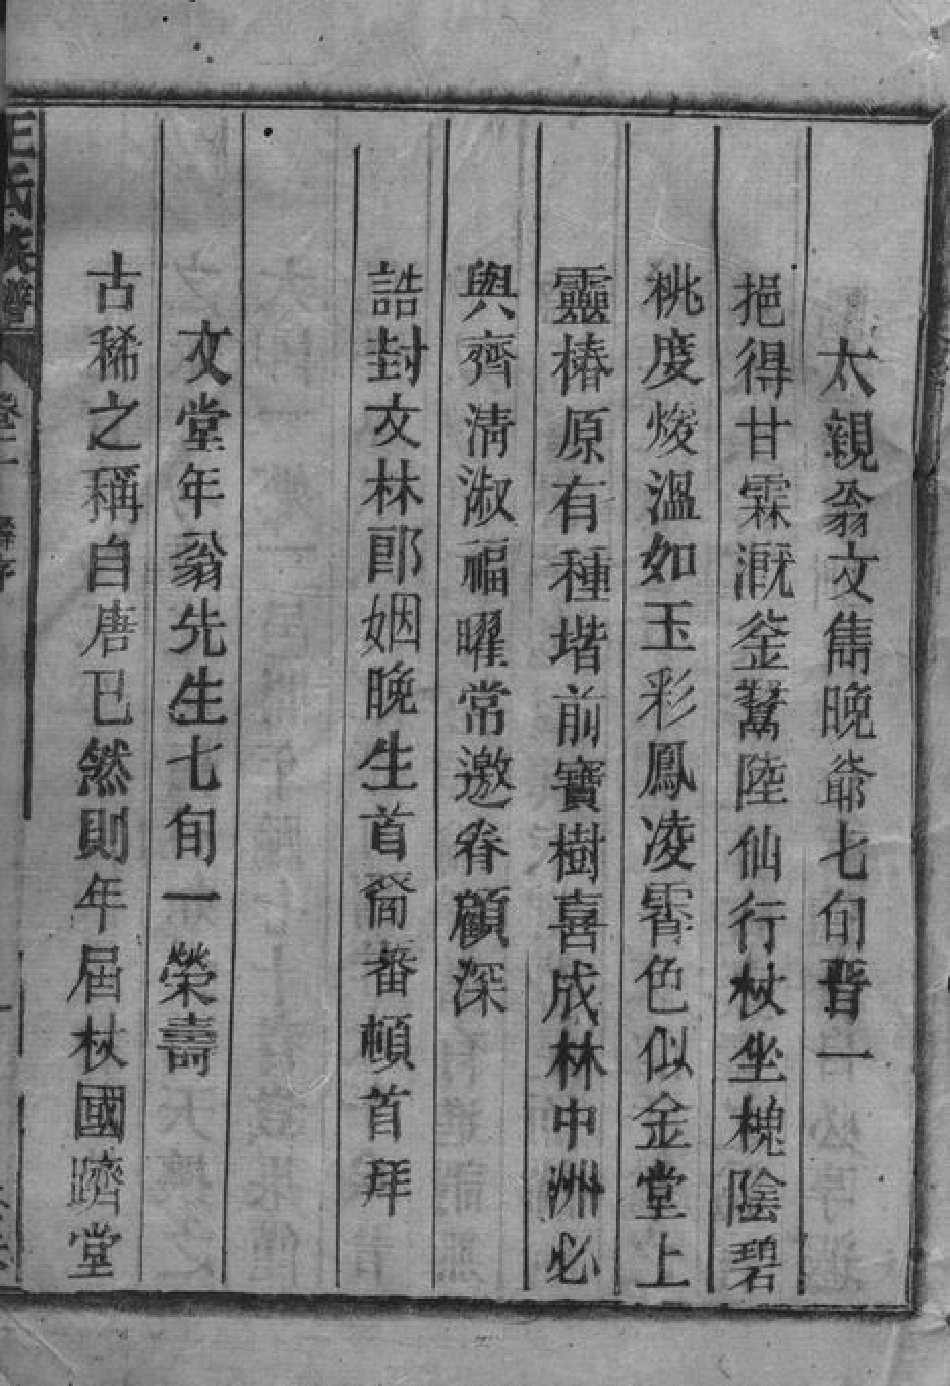 太親翁文雋晚爺七旬晋一
挹得甘霖溉釜鬵陸仙行杖坐槐陰碧
桃度燠溫如玉彩鳳凌霄色似金堂上
靈椿原有種堦前寶樹喜成林中洲必
與齊清淑福曜常邀眷顧深
誥封文林郎姻晚生首裔番頓首拜
文堂年翁先生七旬一榮壽
古稀之稱自唐已然則年屆杖國躋堂
王氏族譜